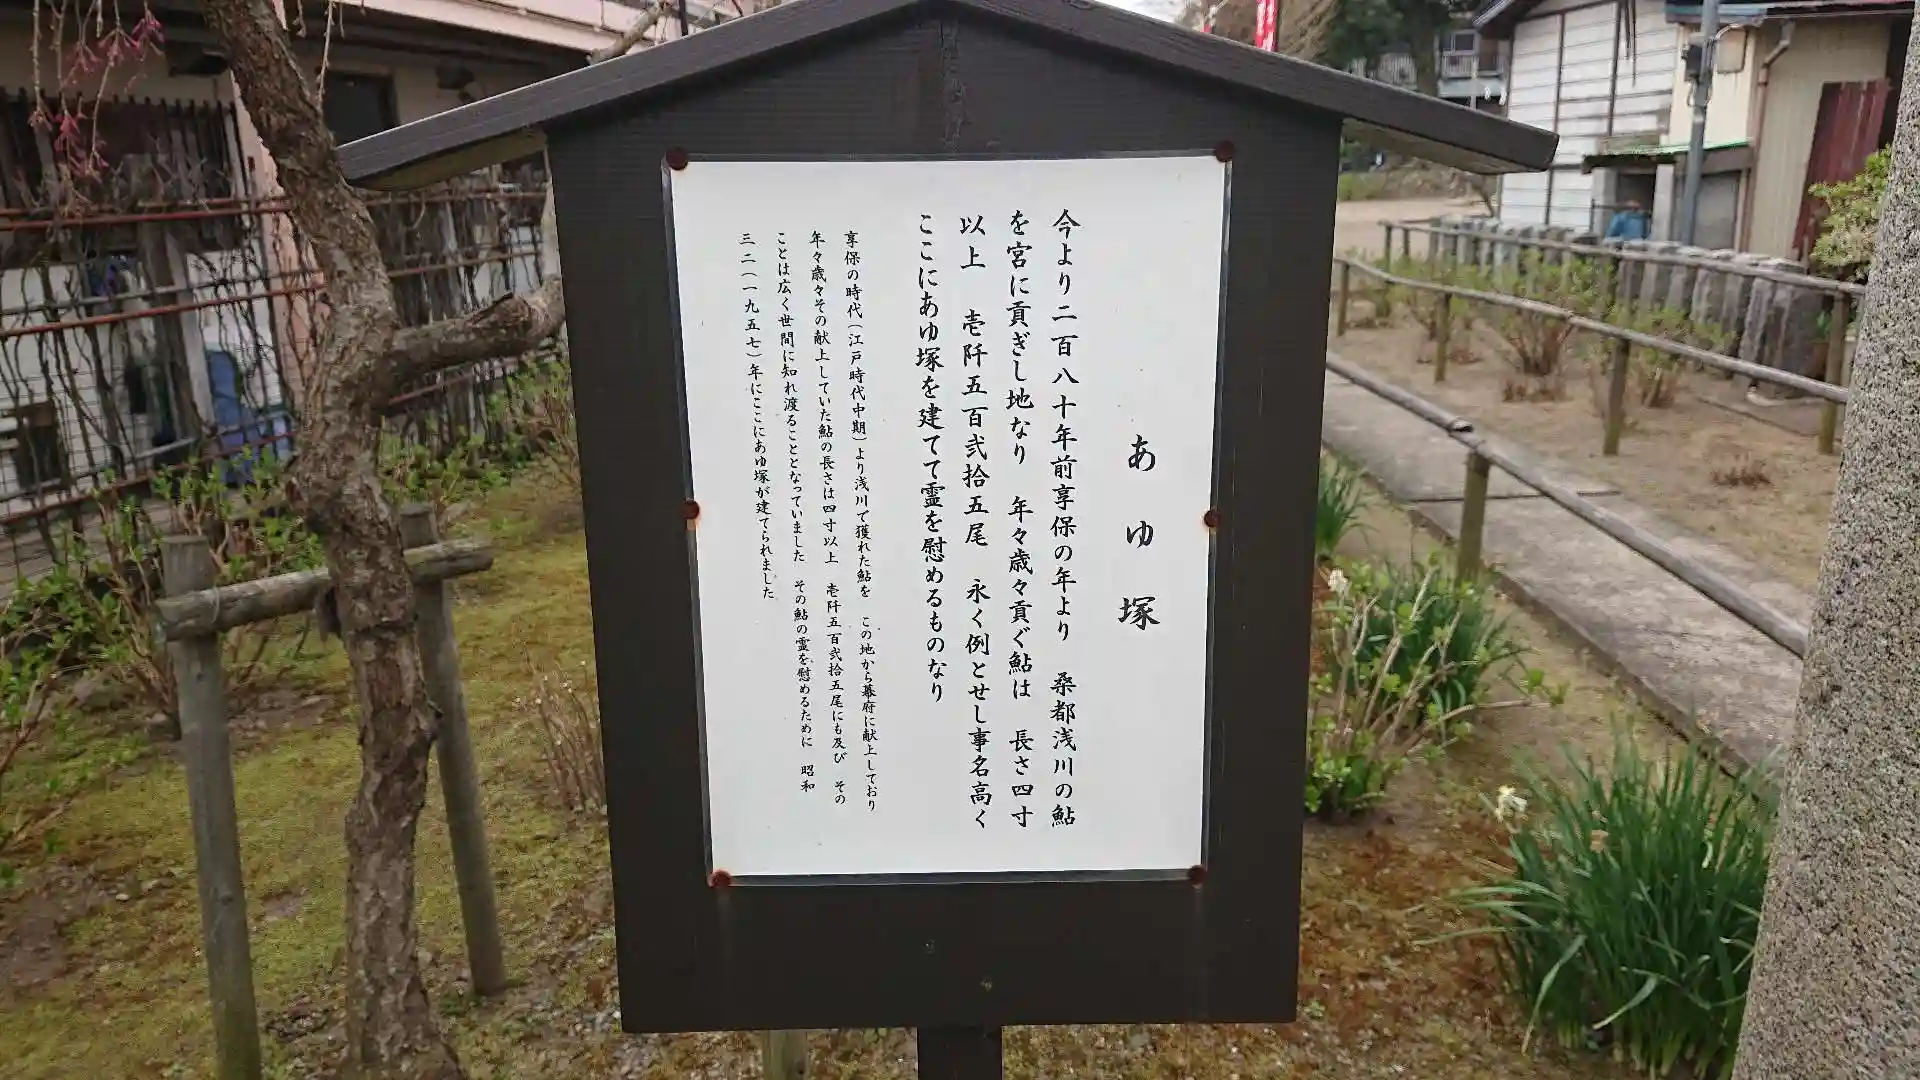 あゆ塚
今より二百八十年前享保の年より 桑都浅川の鮎
を宮に貢ぎし地なり 年々歳々貢ぐ鮎は 長さ四寸
以上 壱阡五百弐拾五尾 永く例とせし事名高く
ここにあゆ塚を建てて霊を慰めるものなり
享保の時代(江戸時代中期)より浅川で獲れた鮎を この地から幕府に献上しており
年々歳々その献上していた鮎の長さは四寸以上 壱阡五百弐拾五尾にも及び その
ことは広く世間に知れ渡ることとなっていました その鮎の霊を慰めるために 昭和
三二(一九五七)年にここにあゆ塚が建てられました